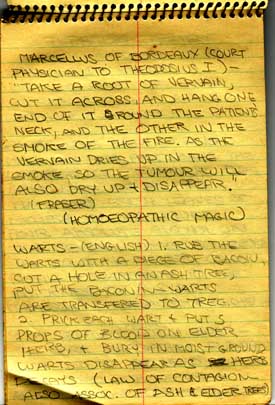 MARCELLUS OF BORDEAUX (COURT
PHYSICIAN TO THEODOSIUS I) -
"TAKE A ROOT OF VERVAIN,
CUT IT ACROSS, AND HANG ONE
END OF IT ROUND THE PATIENTS
NECK, AND THE OTHER IN THE
SMOKE OF THE FIRE. AS THE
VERVAIN DRIES UP IN THE
SMOKE SO THE TUMOUR WILL
ALSO DRY UP + DISAPPEAR."
(FRASER)
(HOMOEOPATHIC MAGIC)
WARTS - (ENGLISH) 1. RUB THE
WARTS WITH A PIECE OF BACON,
CUT A HOLE IN AN ASH TREE,
PUT THE BACON IN - WARTS
ARE TRANSFERED TO TREE.
2. PRICK EACH WART & PUT 3
DROPS OF BLOOD ON ELDER
HERB, & BURY IN MOIST GROUND
WARTS DISAPPEAR AS HERB
DECAYS (LAW OF CONTAGION
ALSO ASSOC. OF ASH & ELDER TREES)